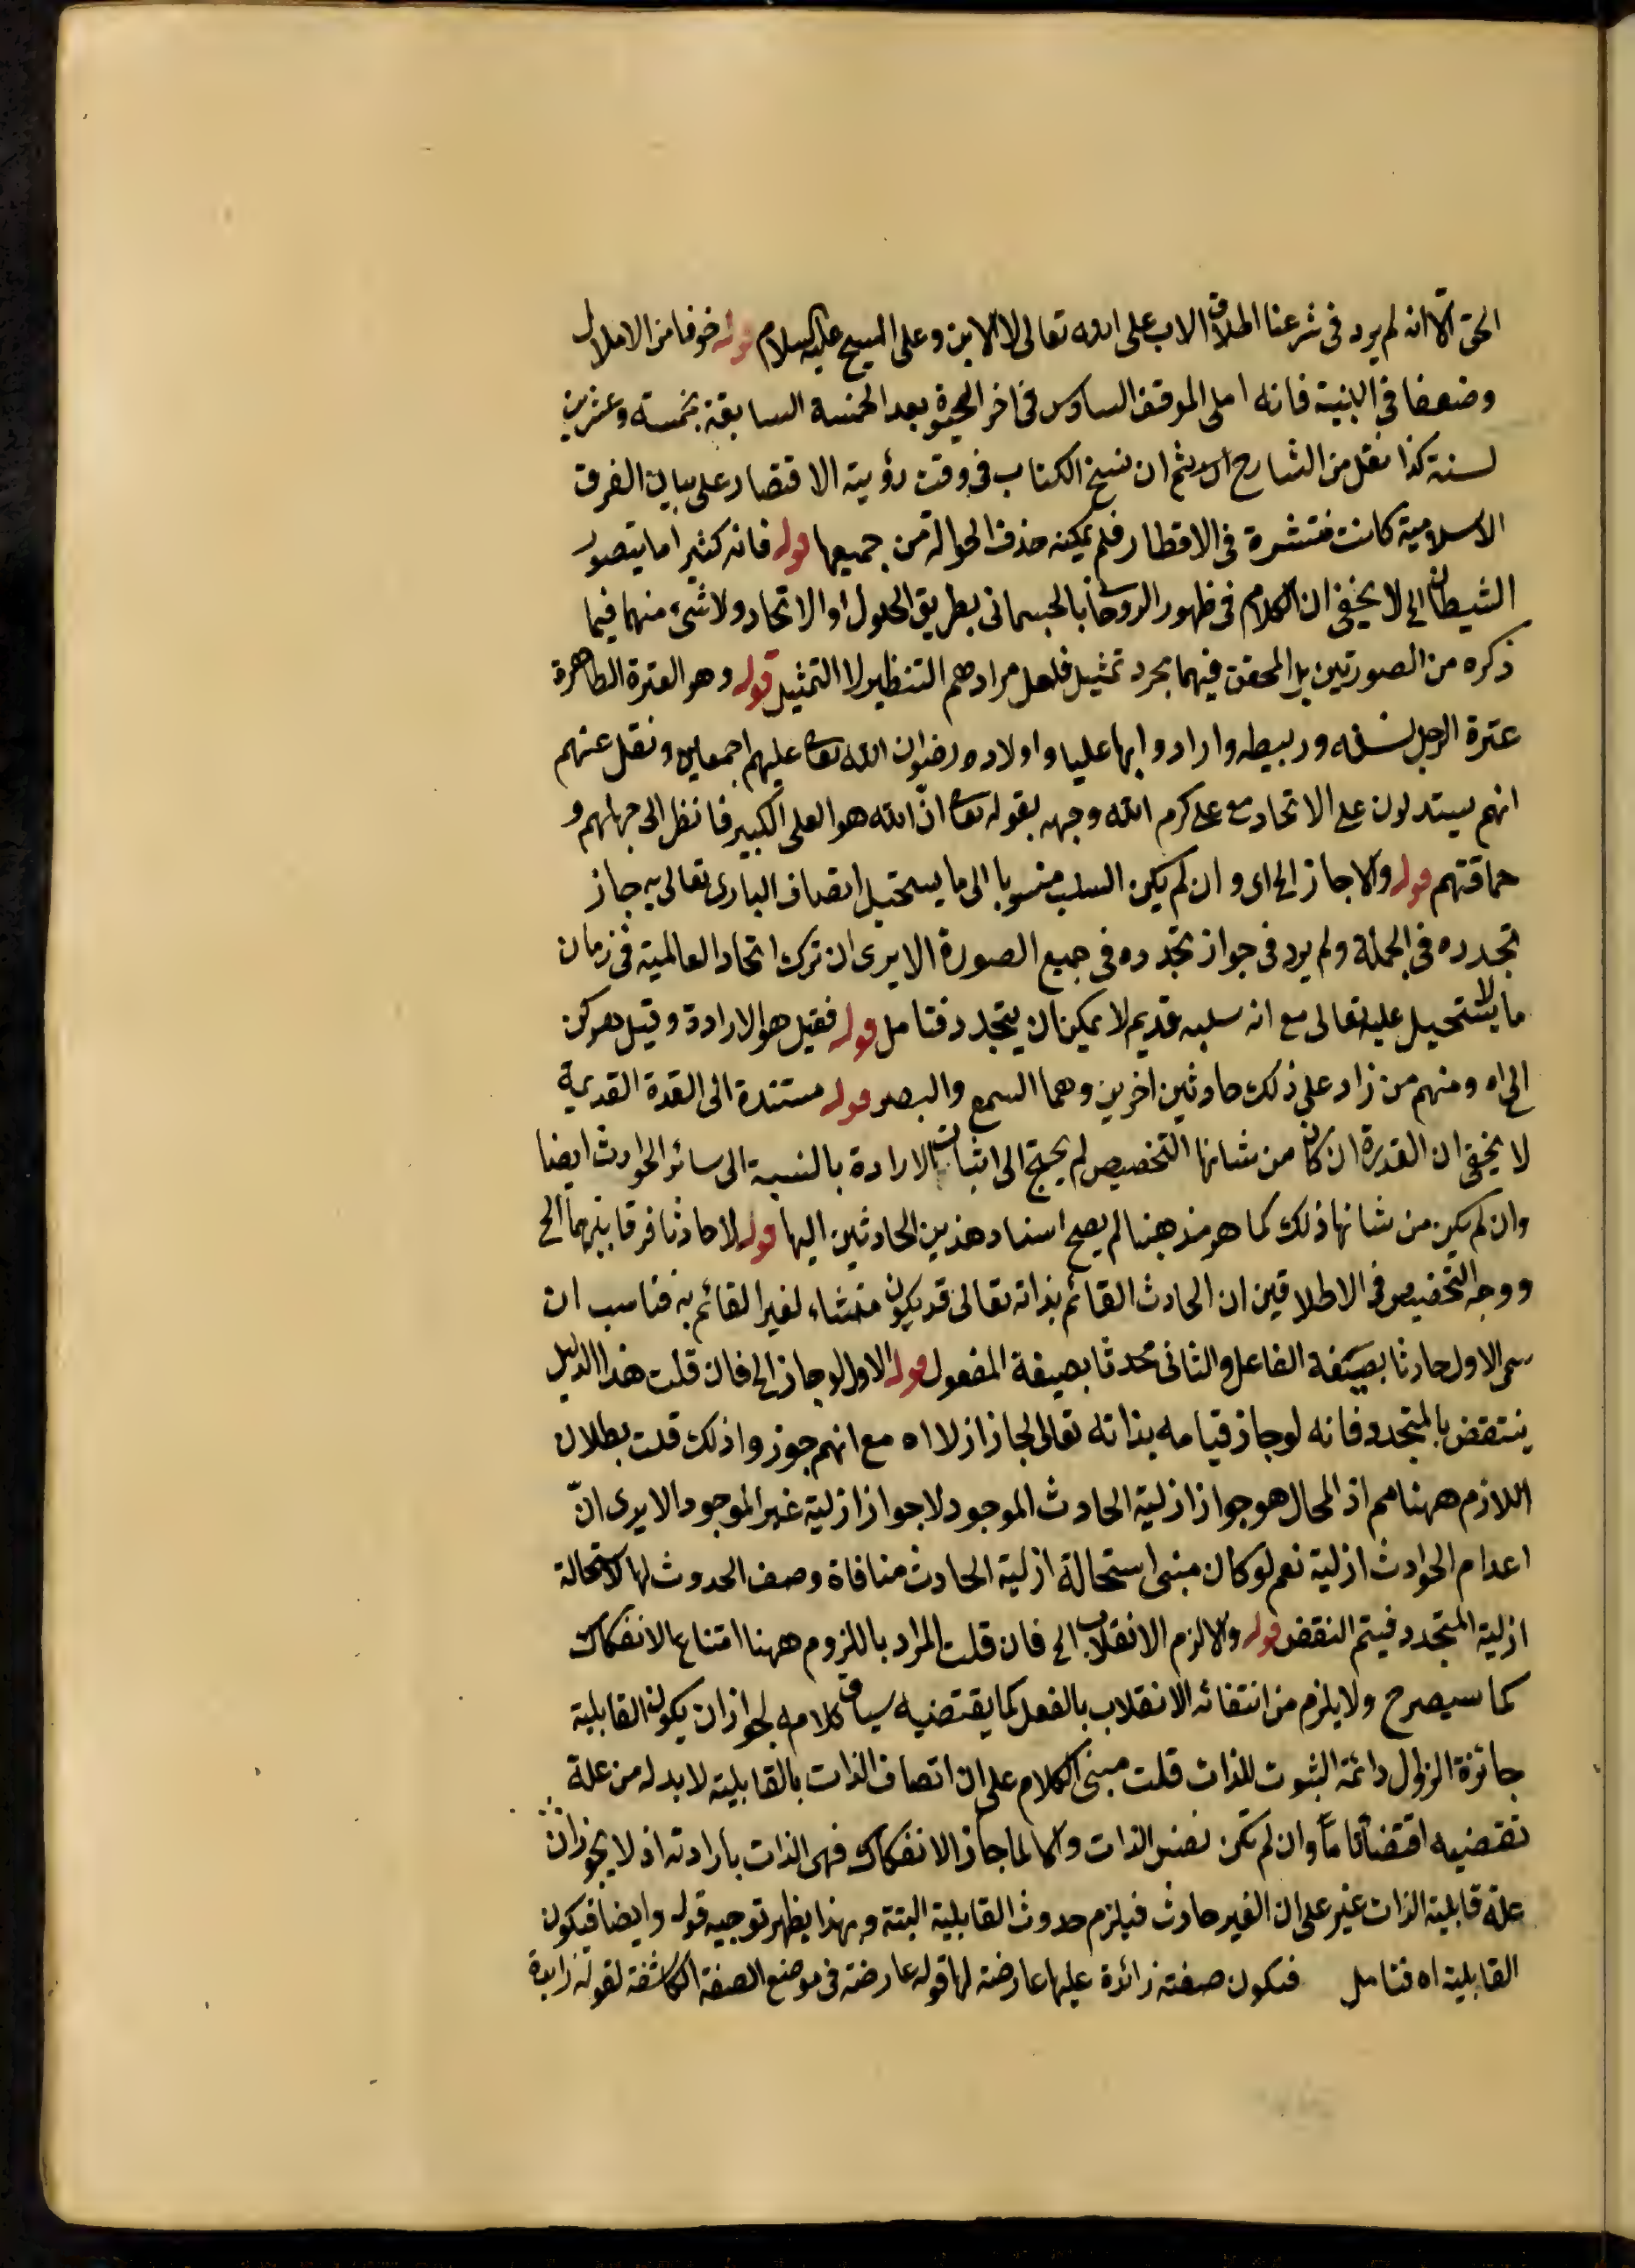 الحق الا انه لم يرد في شرعنا اطلاق الاب على الله تعالى لا الابن وعلى المسيح عليه السلام قوله خوفا من الاملال
وضعفا في البنية فانه املى الموقف السادس في اخر بعد الخمسة السابقة بخمسة وعشرين
لسنة كذا نقل من الشارح ثم ان نسخ الكتاب في وقت رؤية الاقتصار على بيان الفرق
الاسلامية كانت منتشرة في الاقطار فلم يمكنه حذف الحوالة من جميعها قوله فانه كثيرا ما يتصور
الشيطان الخ لا يخفى ان الكلام في ظهور الروحانى بالجسمانى بطريق الحلول او الاتحاد ولا شئ منهما فيما
ذكره من الصورتين بل المحقق فيهما مجرد تمثيل فلعل مرادهم التنظير لا التمثيل قوله وهو العترة الطاهرة
عترة الرجل نسله وربيطه وارادوا بها عليا واولاده رضوان الله تعا عليهم اجمعين ونقل عنهم
انهم يستدلون على الاتحاد مع على كرم الله وجهه بقوله تعا انّ الله هو العلى الكبير فانظر الى جهلهم و
حماقتهم قوله والا جاز الخ اى وان لم يكن السلب منسوبا الى ما يستحيل اتصاف البارى تعالى به جاز
تجدده في الجملة ولم يرد في جواز تجدده في جميع الصورة الا يرى ان ترك اتحاد العالمية في زمان
ما لا يستحيل عليه تعالى مع انه سلبه قديم لا يمكن ان يتجدد فتامل قوله فقيل هو الارادة وقيل هو كن
الخ اه ومنهم من زاد على ذلك حادثين اخرين وهما السمع والبصر قوله مستندة الى القدة القديمة
لا يخفى ان القدرة ان كان من شانها التخصيص لم يحتج الى اثبات الارادة بالنسبة الى سائر الحوادث ايضا
وان لم يكن من شانها ذلك كما هو مذهبنا لم يصح اسناد هذين الحادثين اليها قوله لا حادثا فرقا بينهما الخ
ووجه التخصيص في الاطلاقين ان الحادث القائم بذاته تعالى قد يكون منشاء لغير القائم به فناسب ان
سمى الاول حادثا بصيغة الفاعل والثانى محدثا بصيغة المفعول قوله الاول لو جاز الخ فان قلت هذا الدليل
ينتقض بالمتجدد فانه لو جاز قيامه بذاته تعالى لجاز ازلا اه مع انهم جوزوا ذلك قلت بطلان
اللازم ههنا مم اذ المحال هو جواز ازلية الحادث الموجود لا جواز ازلية غير الموجود الا يرى انّ
اعدام الحوادث ازلية نعم لو كان مبنى استحالة ازلية الحادث منافاة وصف الحدوث لها لاستحالة
ازلية المتجدد فيتم النقض قوله والا لزم الانقلاب الخ فان قلت المراد باللزوم ههنا امتناع الانفكاك
كما سيصرح ولا يلزم من انتفائه الانقلاب بالفعل كما يقتضيه سياق كلامه لجواز ان يكون القابلية
جائزة الزوال دائمة الثبوت للذات قلت مبنى الكلام على ان اتصاف الذات بالقابلية لا بد له من علة
تقتضيه اقتضائا مّا وان لم تكن نفس الذات والا لما جاز الانفكاك فهى الذات بارادته اذ لا يجوز ان
علة قابلية الذات غير على ان الغير حادث فيلزم حدوث القابلية البتة وبهذا يظهر توجيه قوله وايضا فيكون
القابلية اه فتامل فيكون صفته زائدة عليها عارضة لها قوله عارضة في موضع الصفة الكاشفة لقوله زايدة